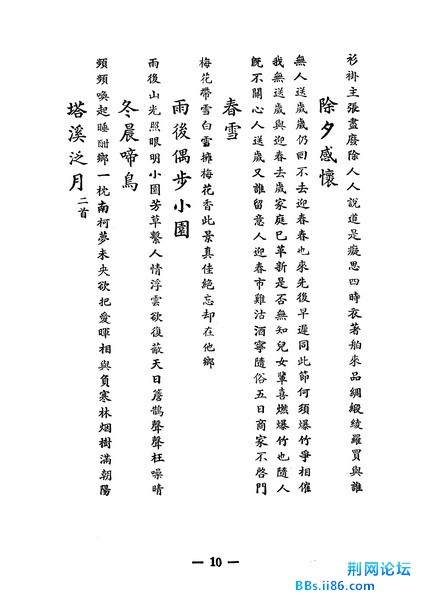 衫褂主張盡廢除人人說道是癡思四時衣著舶來品綢緞綾羅買與誰
除夕感懷
無人送歲歲仍回不去迎春春也來先後早遲同此節何須爆竹爭相催
我無送歲與迎春去歲家庭已革新是否無知兒女輩喜燃爆竹也隨人
旣不關心人送歲又誰留意人迎春市難沽酒寧隨俗五日商家不啓門
春雪
梅花帶雪白雪擁梅花香此景真佳絕忘却在他鄉
雨後偶步小園
雨後山光照眼明小園芳草繫人情浮雲欲復蔽天日簷鵲聲聲枉噪晴
冬晨啼鳥
頻頻喚起睡酣鄉一枕南柯夢未央欲把愛暉相與負寒林烟樹滿朝陽
塔溪泛月 二首
— 10 —
荆网论坛
BBs.ii86.com